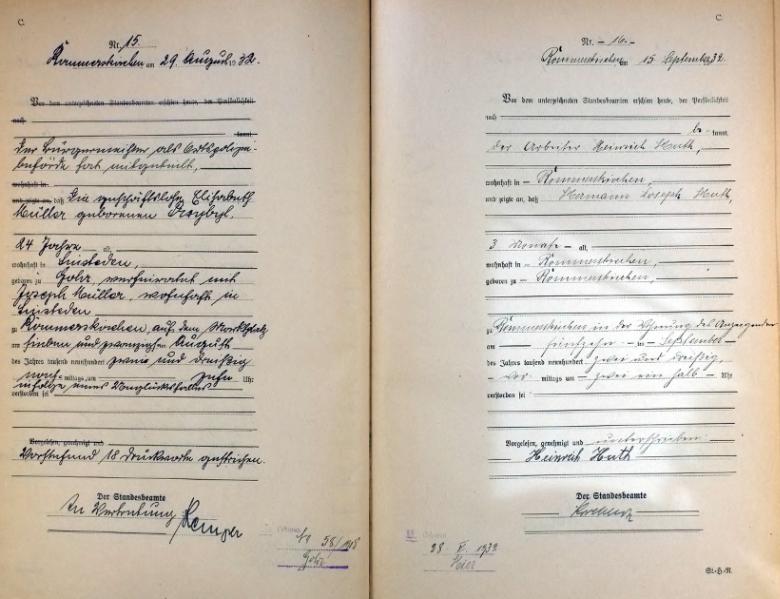 C.
Nr. 15.
Rommerskirchen am 29. August 1932.
Vor dem unterzeichneten Standesbeamten erschien heute, der Persönlichkeit
nach
kannt
der Bürgermeister als Ortspolizei-
behörde hat mitgeteilt,
wohnhaft in
und zeigte an, daß die Elisabeth
Müller geborenen
24 Jahre alt,
wohnhaft in Sinsteden,
geboren zu Gohr, verheiratet mit
Joseph Müller, wohnhaft in
Sinsteden
zu Rommerskirchen, auf dem Marktplatz
am sieben und zwanzigsten August
des Jahres tausend neunhundert zwei und dreißig
nach mittags um zehn Uhr
infolge eines Unglücksfalles
verstorben sei
Vorgelesen, genehmigt und
Vorstehend 18 Druckworte gestrichen.
Der Standesbeamte
In Vertretung Kemper
Geboren
58/1908
Gohr
C.
Nr. 16.
Rommerskirchen am 15 September 32.
Vor dem unterzeichneten Standesbeamten erschien heute, der Persönlichkeit
nach
be kannt
der Arbeiter Heinrich Huth,
wohnhaft in Rommerskirchen
und zeigte an, daß Hermann Joseph Huth,
3 Monate alt,
wohnhaft in Rommerskirchen,
geboren zu Rommerskirchen,
zu Rommerskirchen in der Wohnung des Anzeigenden
am fünfzehn ten September
des Jahres tausend neunhundert zwei und dreißig,
vor mittags um zwei ein halb Uhr
verstorben sei
Vorgelesen, genehmigt und unterschrieben:
Heinrich Huth
Der Standesbeamte
Geboren
28 1932
St.H.R.